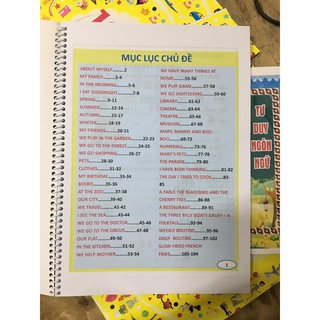 MỤC LỤC CHỦ ĐỀ
ABOUT MYSELF........2
MY FAMILY........3-4
IN THE MORNING......5-6
I SAY GOODNIGHT......7-8
SPRING......9-11
SUMMER......12-14
AUTUMN......15-17
WINTER......18-19
MY FRIENDS......20-21
WE PLAY IN THE GARDEN......22-23
WE GO TO THE FOREST......24-25
WE GO SHOPPING......26-27
PETS......28-30
CLOTHES......31-32
MY BIRTHDAY......33-34
BOOKS......35-36
AT THE ZOO......37-38
OUR CITY......39-40
WE TRAVEL......41-42
I SEE THE SEA......43-44
WE GO TO THE DOCTOR......45-46
WE GO TO THE CIRCUS......47-48
OUR FLAT......49-50
IN THE KITCHEN......51-52
WE HELP MOTHER......53-54
WE HAVE MANY THINGS AT
HOME......55-56
WE PLAY GAME......57-58
WE GO SIGHTSEEING......59-60
LIBRARY......61-62
CINEMA......63-64
THEATRE......65-66
MUSEUM......67-68
MARY, MAMMY AND MOO-
BOO......
NUMERALS......73-76
MARY'S PETS......77-78
THE PARADE......79-80
I HAVE BEEN THINKING......81-82
THE DAY I TRIED TO COOK......83-
85
A FABLE THE BLACKBIRD AND THE
CHERRY TREE......86-88
A RESTAURANT......89-91
THE THREE BILLY GOATS GRUFF – A
FOLKTALE......92-94
WEEKLY ROUTINE......95-96
DAILY ROUTINE......97-102
SLOW FRIED FRENCH
FRIES......103-104
1
TƯ
DUY
NGÔN
NGỮ